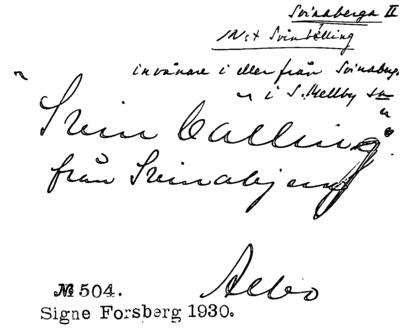 Svinaberga II
Svinbälling
invånare i eller från Svinaberga
" i S. Mellby sn
"Svin bälling"
från Svinabjerg
Albo
№ 504.
Signe Forsberg 1930.